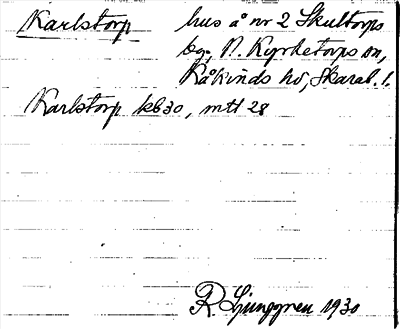 Karlstorp hus å nr 2 Skultorps
by, N. Kyrketorps sn,
Kåkinds hd, Skarab. l.
Karlstorp kb 30, mtl 28
R. Ljunggren 1930